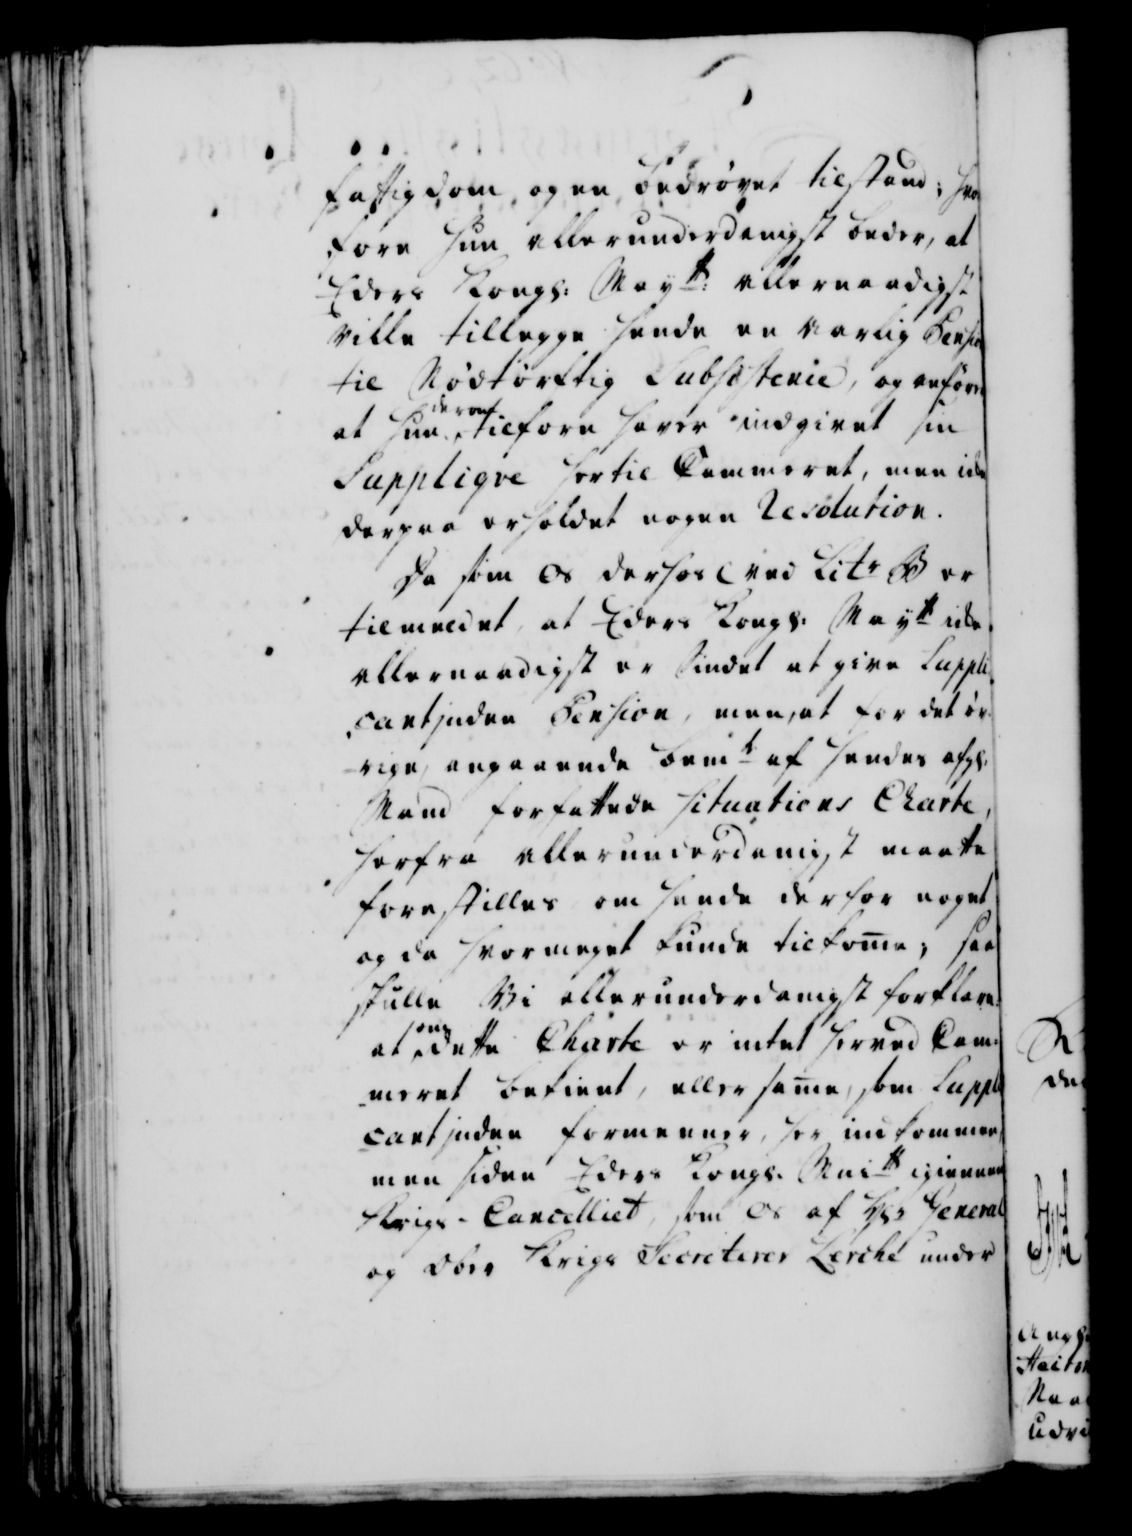 fattigdom, og en bedrøvet tilstand; hvor
fore hun allerunderdanigst beder, at
Eders Kongl: May<sup>tt</sup>: allernaadigst
ville tillegge hende en aarlig Pension
til Nødtørftig Subsistence, og anfører
at hun derom tilforn haver indgivet sin
Supplique hertil Cammeret, men icke
derpaa erholdet nogen Resolution.
Da som os derhos ved Litr B er
tilmeldet, at Eders Kongl: May<sup>tt</sup> icke
allernaadigst er Sindet at give Suppli-
cantinden Pension, men, at for det øv-
rige, angaaende bem<sup>te</sup> af hendes afgl:
Mand forfattede Situations Charte,
herfra allerunderdanigst maatte
forestilles om hende derfor noget
og da hvormeget kunde tilkome; saa
skulle Vi allerunderdanigst forklare
at om dette Charte er intet herved Cam-
meret bekient, eller same, som Suppli-
cantinden formeener, her indkommen,
men siden Eders Kongl. Mai<sup>tt</sup> igiennem
Krigs-Cancelliet, som os af Hr General
og Ober Krigs Secreterer Lerche under